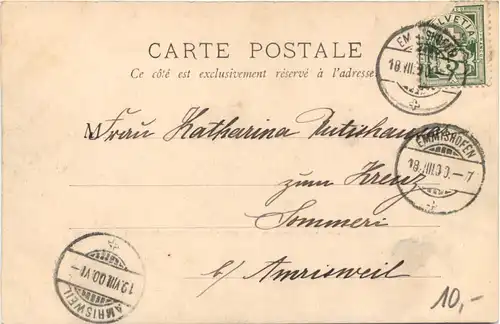 CARTE POSTALE
Ce côté est exclusivement réservé à l'adresse.
HELVETIA
EMMISHOFEN
18.VIII.
M
Frau Katharina
EMMISHOFEN
18.VIII.00.-7
zum Kreuz
Sommeri
b/ Amrisweil
AMRISWEIL
19.VIII.00.VI-
10,-